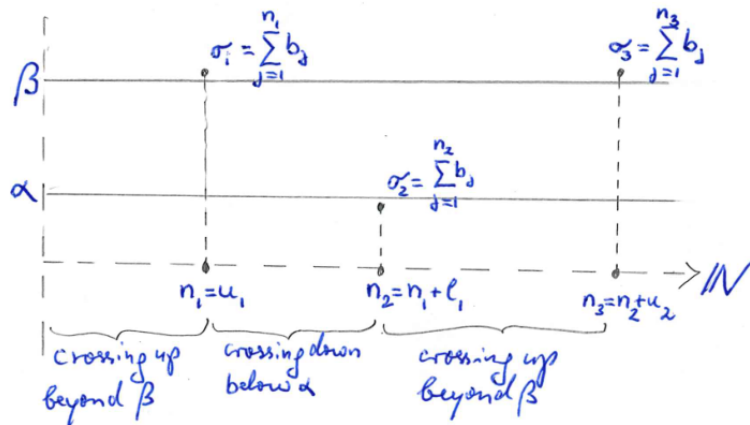 β
σ₁ = ∑_{j=1}^{n₁} b_j
σ₃ = ∑_{j=1}^{n₃} b_j
α
σ₂ = ∑_{j=1}^{n₂} b_j
ℕ
n₁=u₁
n₂=n₁+l₁
n₃=n₂+u₂
crossing up
beyond β
crossing down
below α
crossing up
beyond β